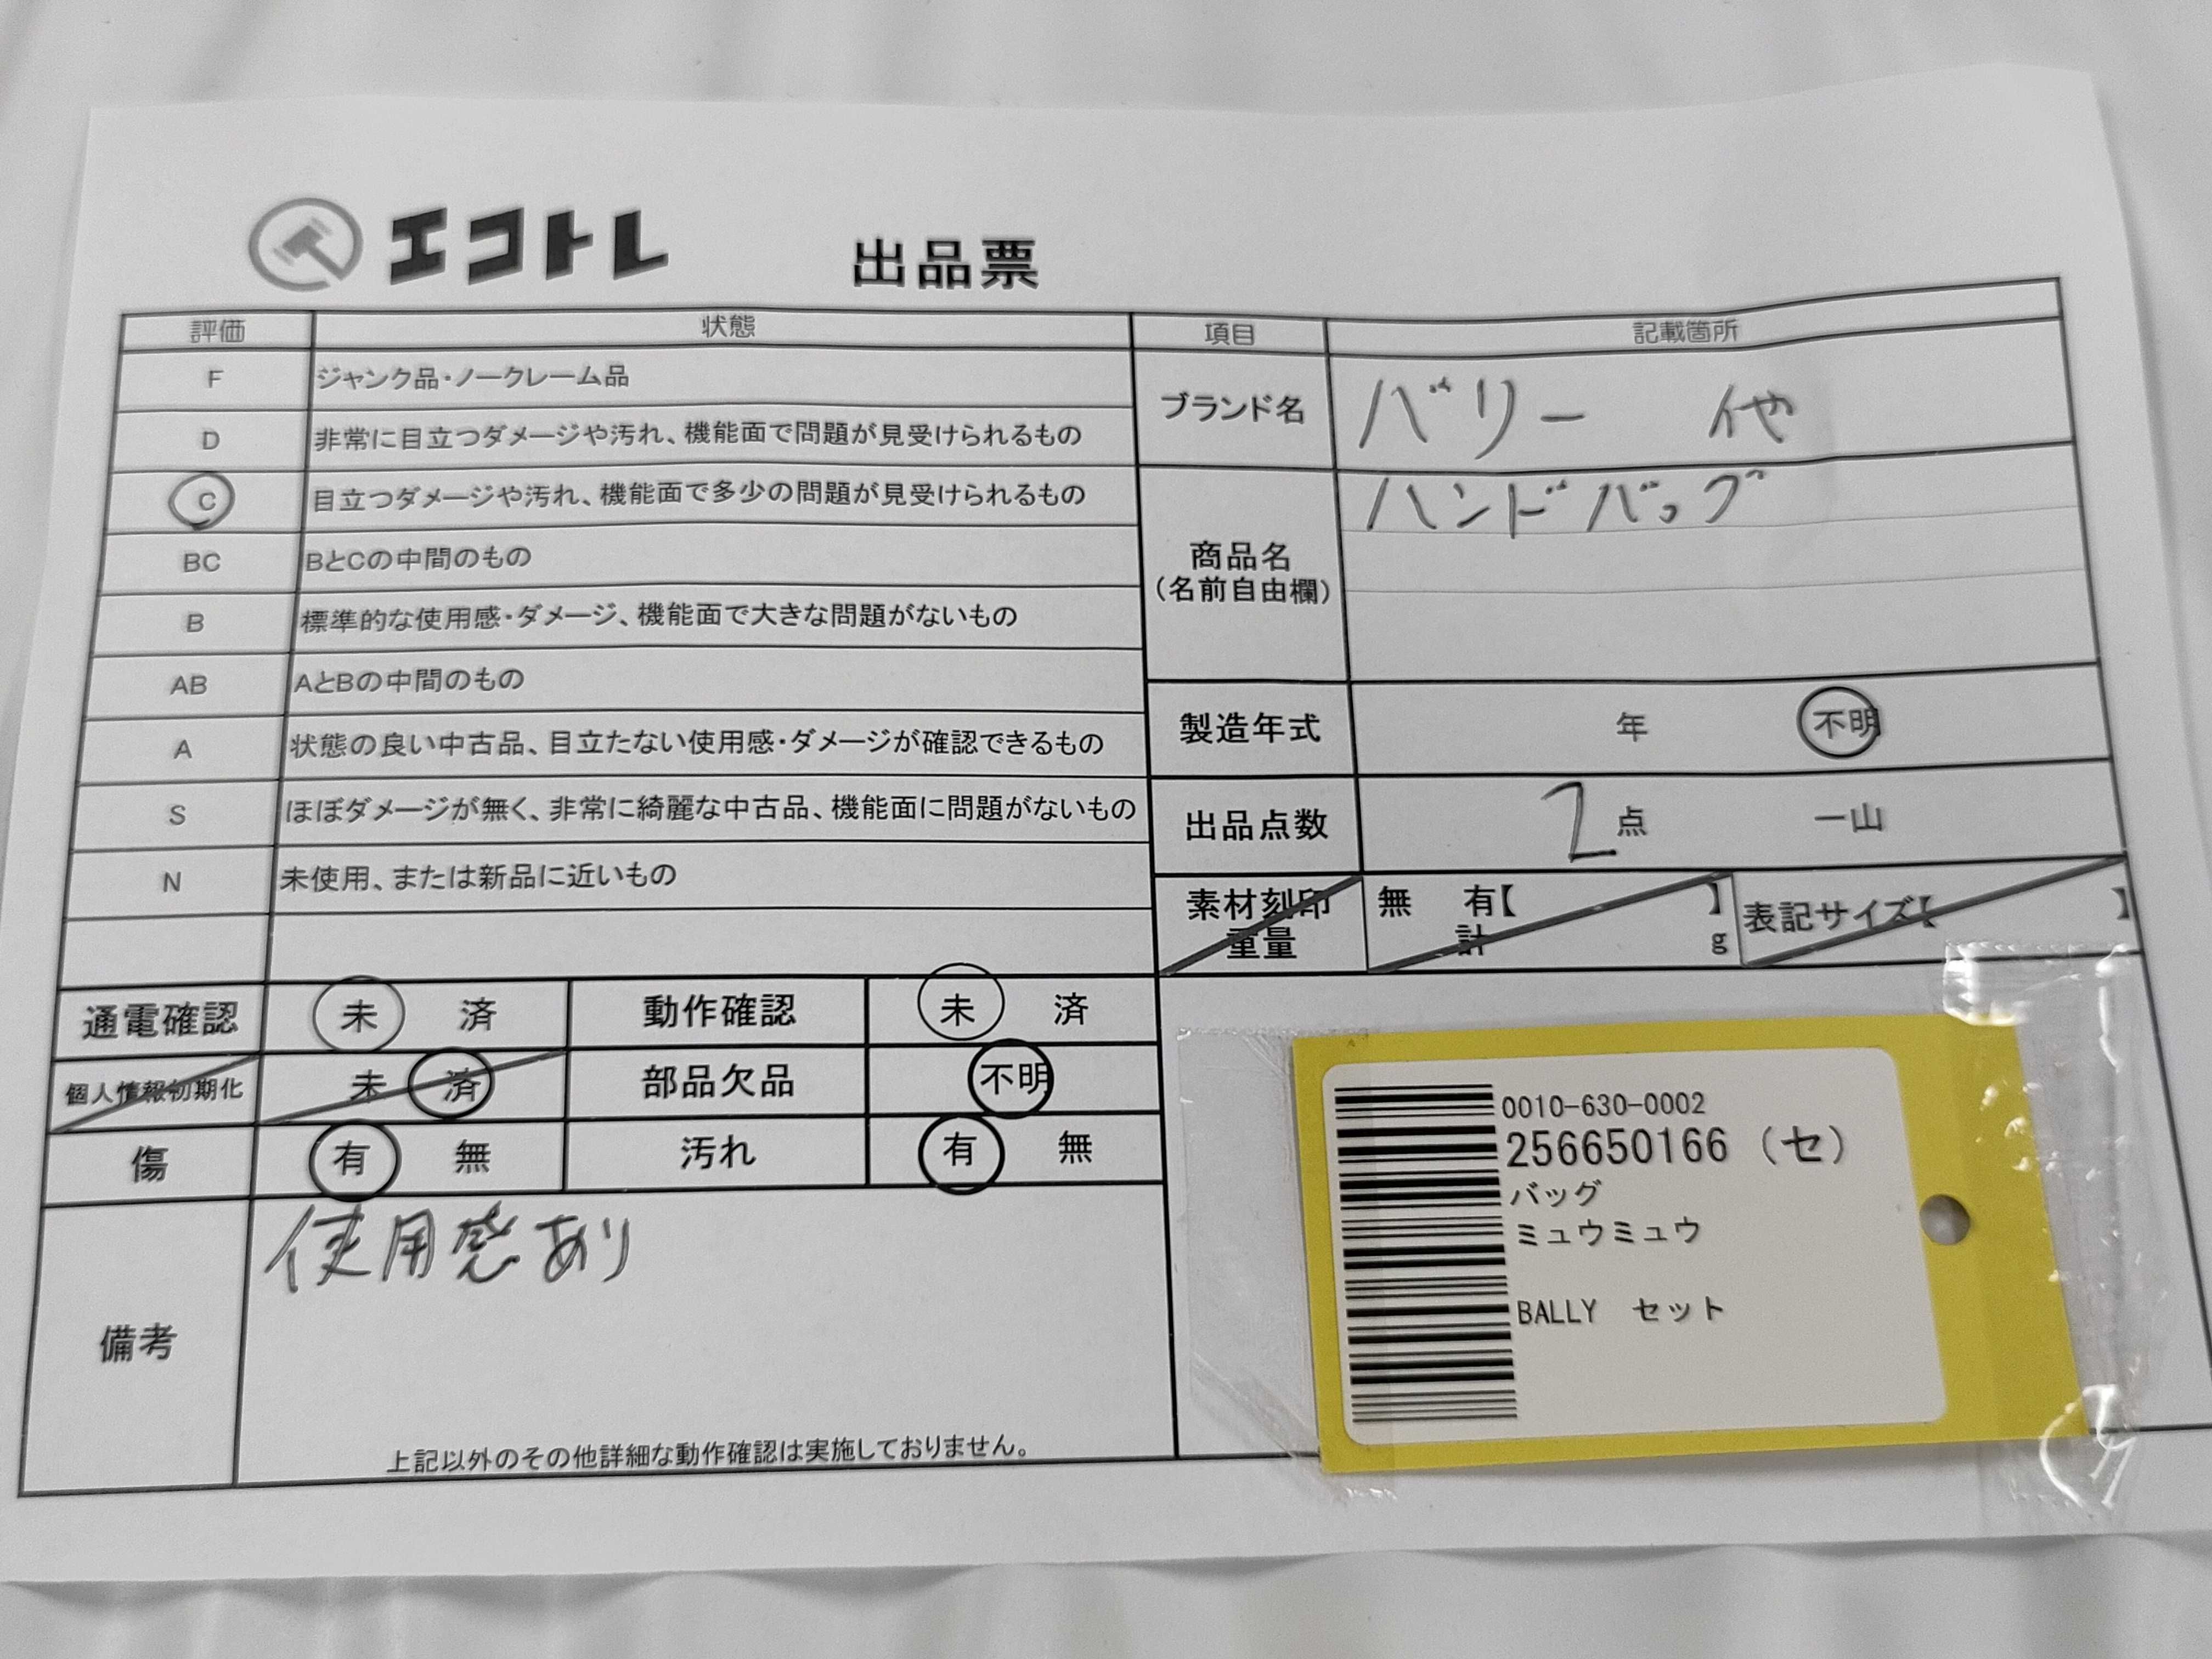 エコトレ 出品票
評価 状態
F ジャンク品・ノークレーム品
D 非常に目立つダメージや汚れ、機能面で問題が見受けられるもの
C 目立つダメージや汚れ、機能面で多少の問題が見受けられるもの
BC BとCの中間のもの
B 標準的な使用感・ダメージ、機能面で大きな問題がないもの
AB AとBの中間のもの
A 状態の良い中古品、目立たない使用感・ダメージが確認できるもの
S ほぼダメージが無く、非常に綺麗な中古品、機能面に問題がないもの
N 未使用、または新品に近いもの
項目 記載箇所
ブランド名 バリー 他
商品名 ハンドバッグ
(名前自由欄)
製造年式 年 不明
出品点数 2点 一山
素材刻印 無 有【 】 表記サイズ【 】
重量 計 g
通電確認 未 済 動作確認 未 済
個人情報初期化 未 済 部品欠品 不明
傷 有 無 汚れ 有 無
備考 使用感あり
上記以外のその他詳細な動作確認は実施しておりません。
0010-630-0002
256650166 (セ)
バッグ
ミュウミュウ
BALLY セット